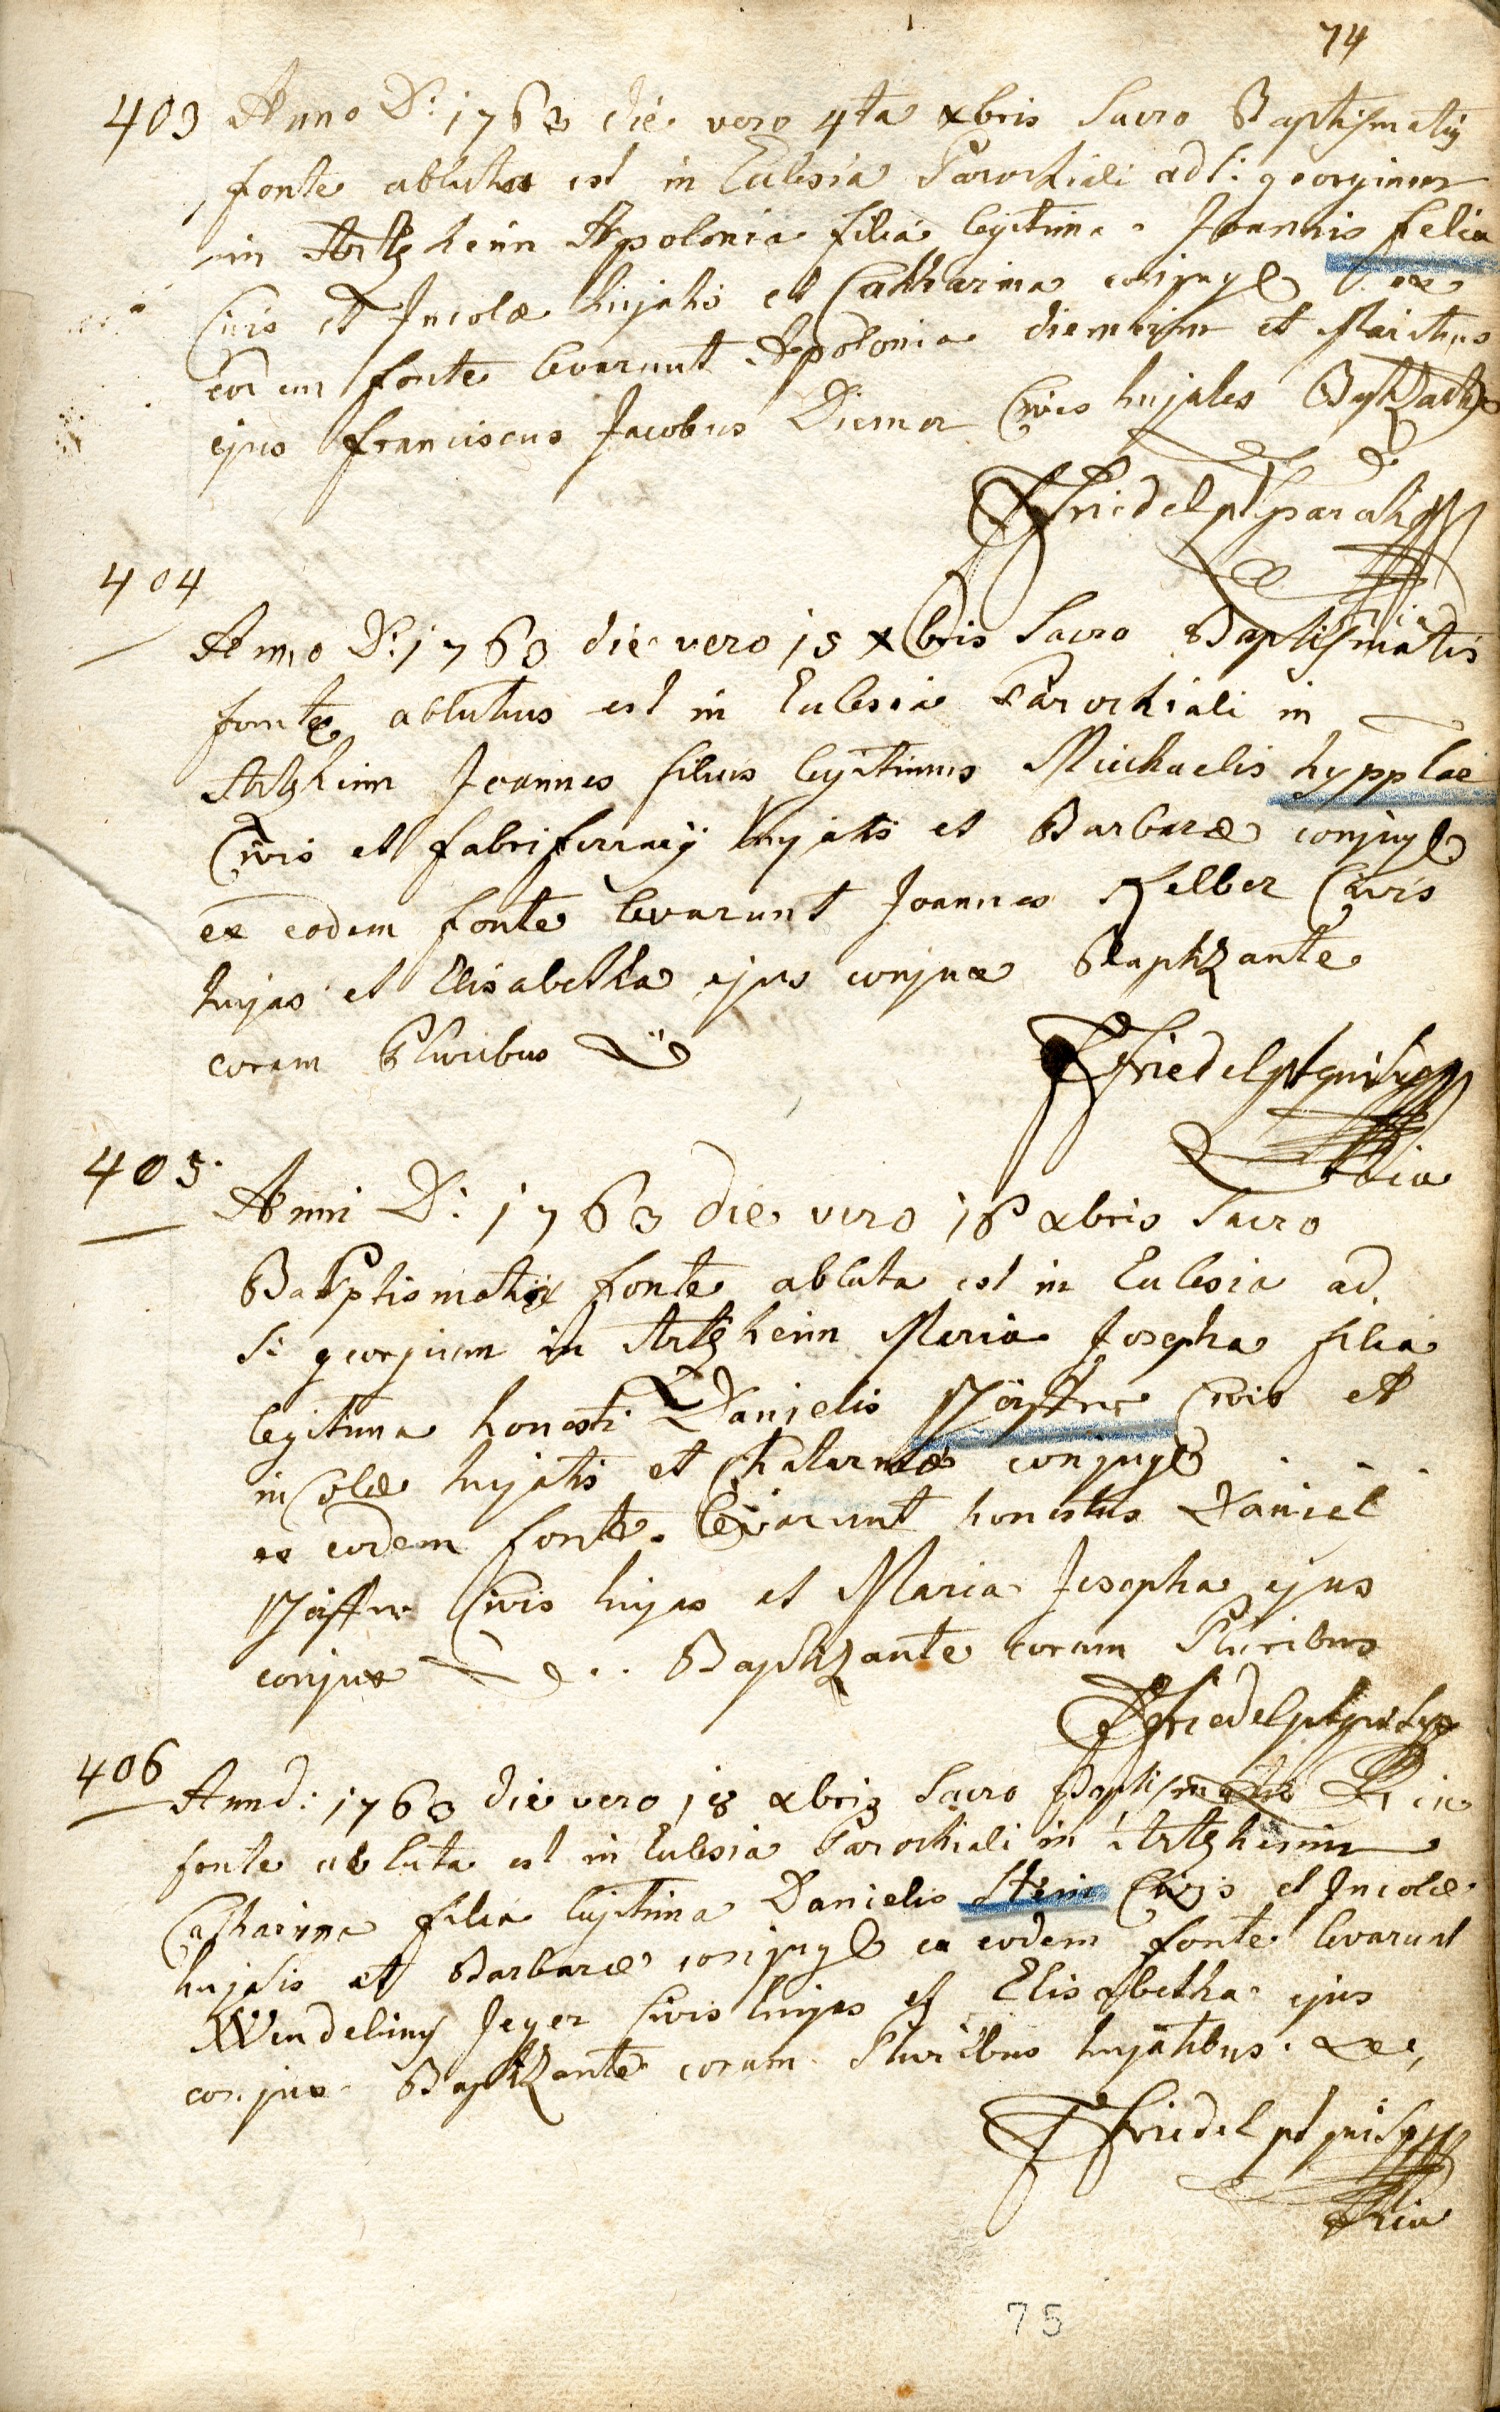 74
403 Anno D: 1763 die vero 4ta xbris Sacro Baptismatis
fonte abluta est in Eclesia Parochiali ad S: georgium
in Artzheim Apolonia filia legitima Joannis felix
Civis et Incolæ hujatis et Catharina conjuge ex
eodem fonte levarunt Apolonia diemerin et Maritus
ejus Franciscus Jacobus Diemer Cives hujates
F Friedel pt
404
Anno D: 1763 die vero 15 xbris Sacro Baptismatis
fonte ablutus est in Eclesia Parochiali in
Artzheim Joannes filius legitimus Michaelis hypplae
Civis et fabriferrarij hujatis et Barbaræ conjuge
ex eodem fonte levarunt Joannes Kelber Civis
hujas et Elisabetha ejus conjux Baptizante
coram Pluribus
F Friedel pt
405.
Anni D: 1763 die vero 16 xbris Sacro
Baptismatis fonte abluta est in Eclesia ad
S: georgium in Artzheim Maria Josepha filia
legitima honesti Danielis Civis et
incolæ hujatis et Chatarinæ conjuge
ex eodem fonte levarunt honestus Daniel
Civis hujas et Maria Josepha ejus
conjux Baptizante coram Pluribus
F Friedel pt
406
Ann d: 1763 die vero 18 xbris Sacro Baptismatis
fonte abluta est in Eclesia Parochiali in Artzheim
Catharina filia legitima Danielis Stein Civis et Incolæ
hujatis et Barbaræ conjuge ex eodem fonte levarunt
Wendelinus Jeger Civis hujas et Elisabetha ejus
conjux Baptizante coram Pluribus hujatibus
F Friedel pt
75